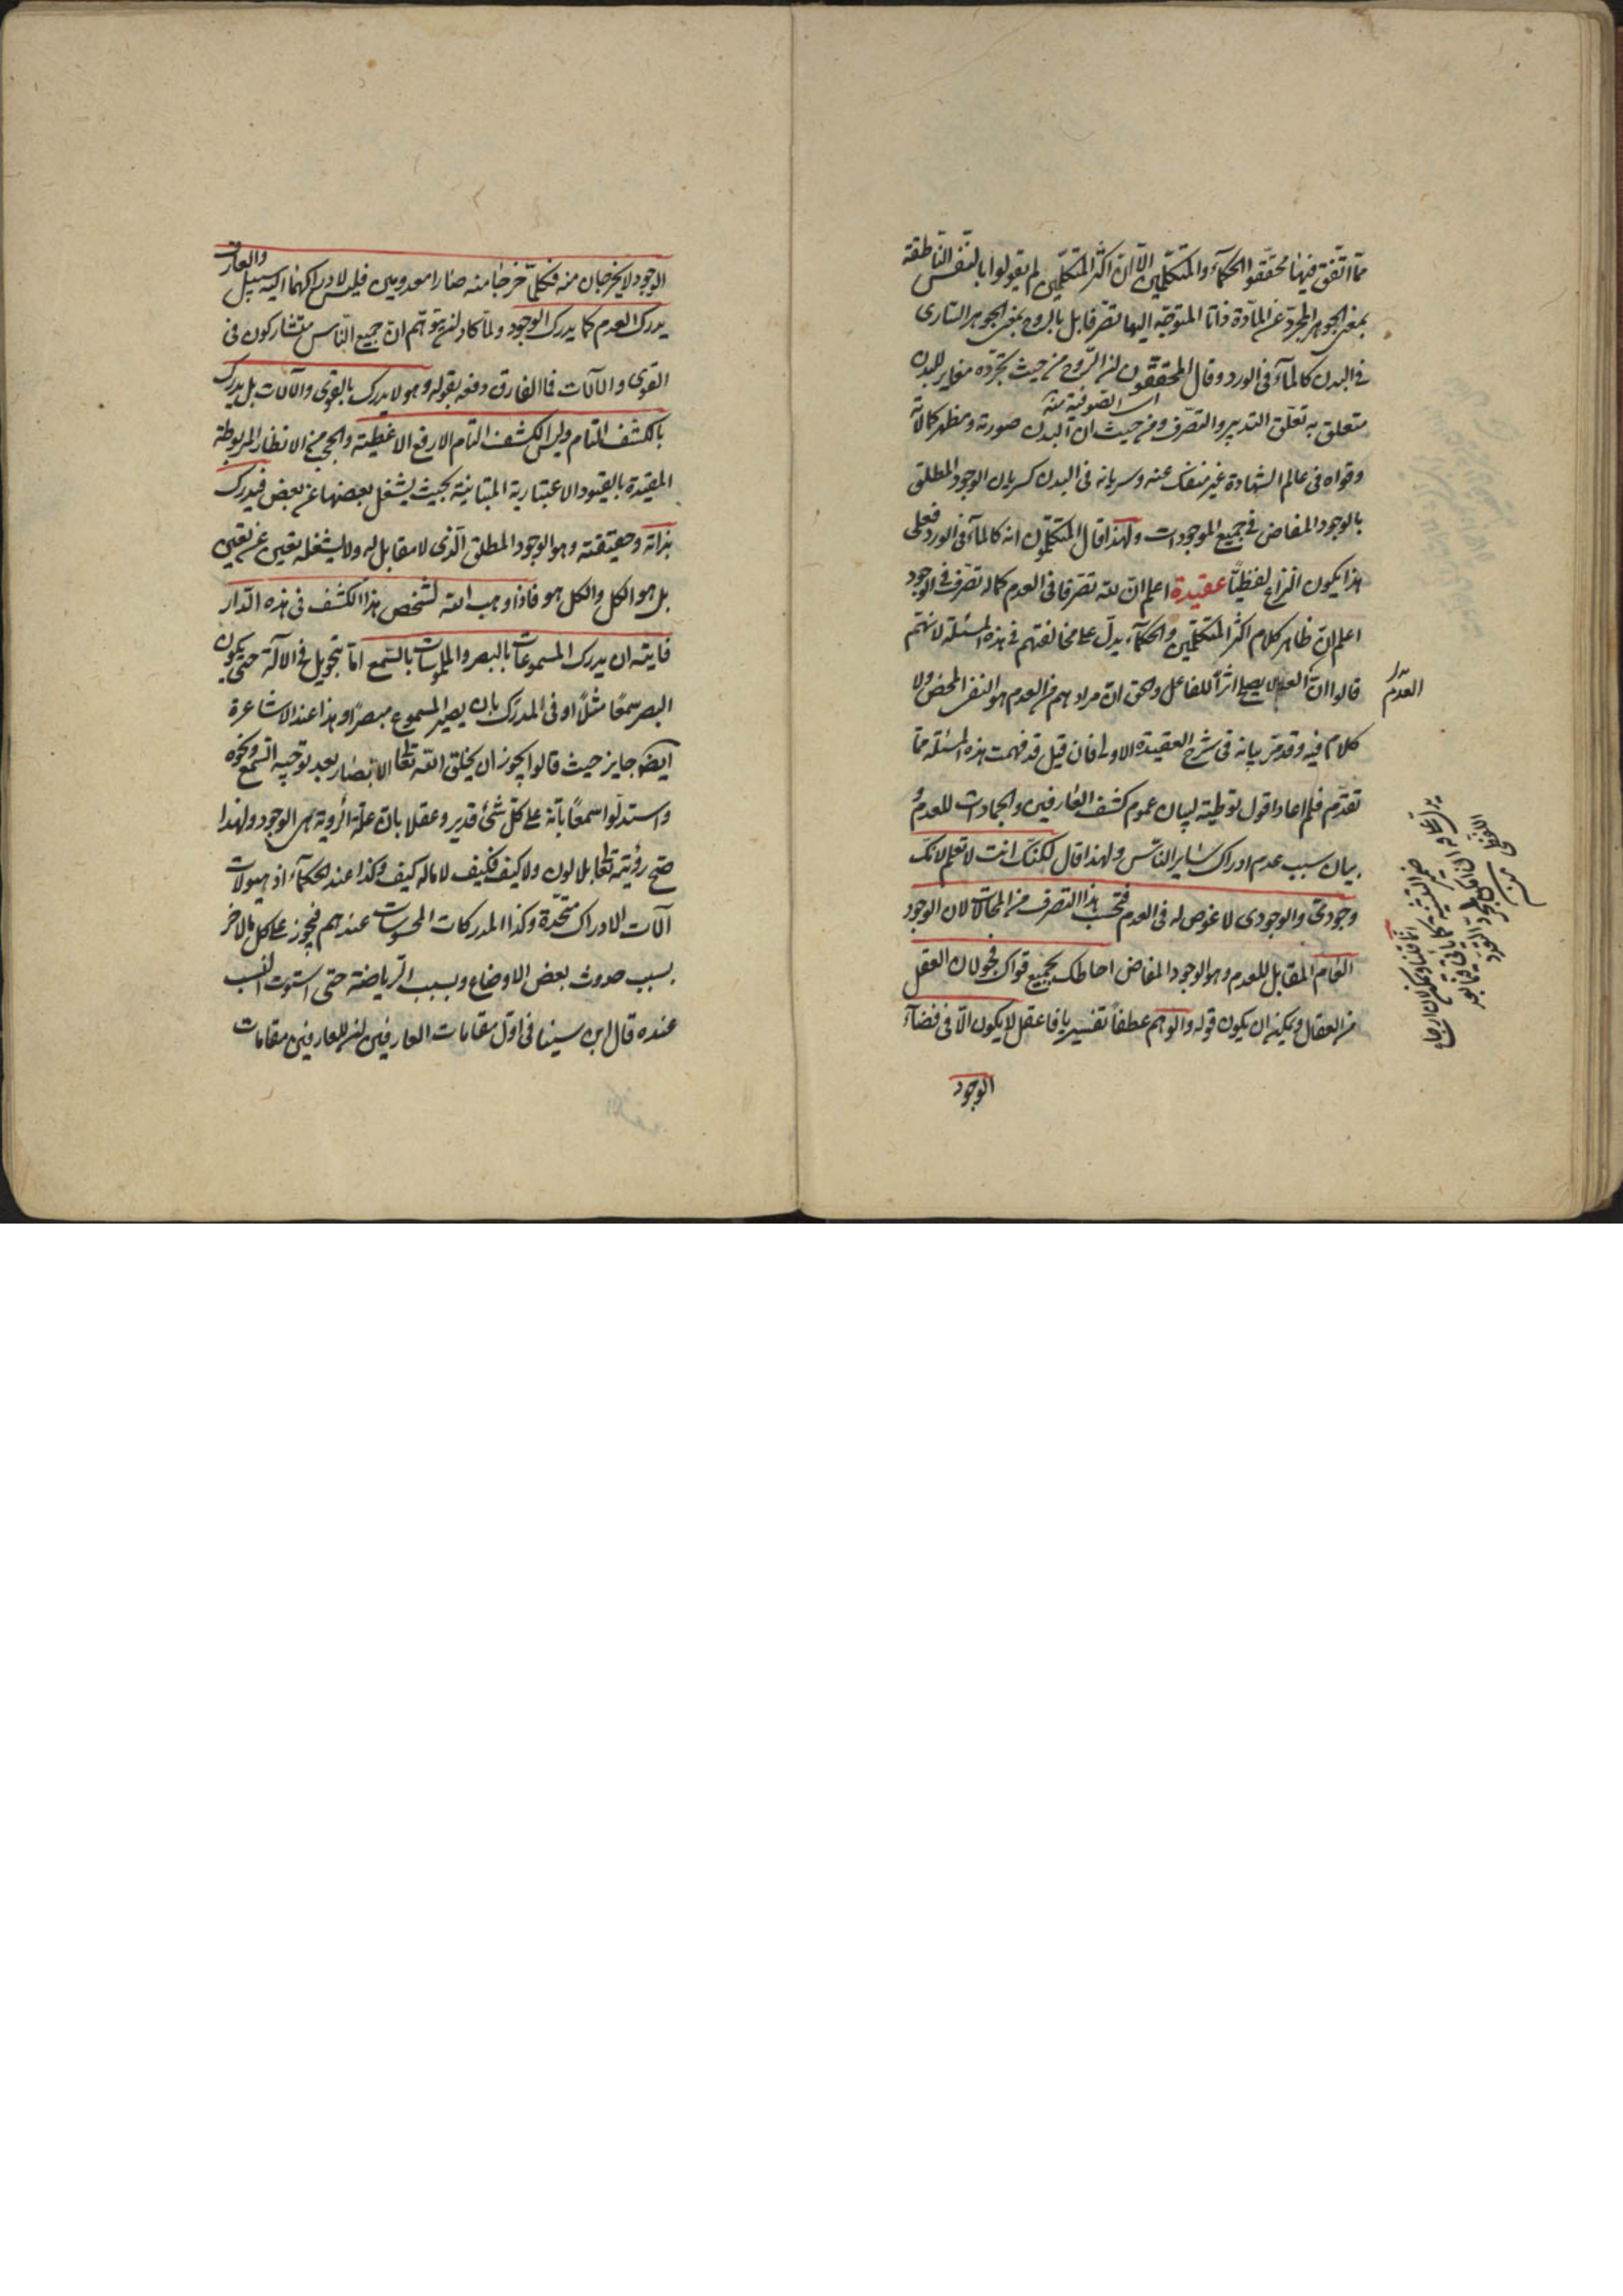 مما اتفق فيها محققوا الحكمآء والمتكلمين الا ان اكثر المتكلمين لم يقولوا بالنفس الناطقة
بمعنى الجوهر المجرد عن المادة فاتا المتوجه اليها تصر قابل بالروح بمعنى الجوهر السارى
فى البدن كالمآء فى الورد وقال المحققون ان الروح من حيث تجرده مغاير للبدن
اى الصوفية منه
متعلق به تعلق التدبير والتصرف ومن حيث ان البدن صورته ومظهر كمالاته
وقواه فى عالم الشهادة غير منفك عنه وسريانه فى البدن كسريان الوجود المطلق
بالوجود المفاض فى جميع الموجودات ولهذا قال المتكلمون انه كالمآء فى الورد فعلى
هذا يكون النزاع لفظيًّا عقيدة اعلم ان لله تصرفا فى العدم كما له تصرف فى الوجود
اعلم ان ظاهر كلام اكثر المتكلمين والحكمآء يدل على مخالفتهم فى هذه المسئلة لانهم
قالوا ان العدم لا يصلح اثرًا للفاعل والحق ان مرادهم من العدم هو النفى المحض ولا
العدم
كلام فيه وقد مر بيانه فى شرح العقيدة الاولى فان قيل قد فهمت هذه المسئلة مما
تقدم فلم اعاد اقول توطية لبيان عموم كشف العارفين والجمادات للعدم و
بيان سبب عدم ادراك ساير الناس ولهذا قال لكنك انت لا تعلم لانك
وجودى والوجودى لا غوص له فى العدم فتحسب هذا التصرف من المحالات لان الوجود
العام المقابل للعدم وهو الوجود المفاض احاطك بجميع قواك فجولان العقل
من العقال ويمكن ان يكون قوله والوهم عطفا تفسيريا فا عقل لا يكون الا فى فضآء
الوجود
الوجود لا يخرجان منه فكلما خرجا منه صارا معدومين فليس لادراكهما اليه سبيل والعارف
يدرك العدم كما يدرك الوجود ولما كاد ان يتوهم ان جميع الناس متشاركون فى
القوى والآلات فما الفارق دفعه بقوله وهو لا يدرك بالقوى والآلات بل يدرك
بالكشف التام وليس الكشف التام الا رفع الاغطية والحجب من الانظار المربوطة
المقيدة بالقيود الاعتبارية المتباينة بحيث يشغل بعضها عن بعض فيدرك
بذاته وحقيقته وهو الوجود المطلق الذى لا مقابل له ولا يشغله تعين عن تعين
بل هو الكل والكل هو فاذا وهب الله لشخص هذا الكشف فى هذه الدار
فايته ان يدرك المسموعات بالبصر والملموسات بالسمع اما بتحويل فى الآلة حتى يكون
البصر سمعًا مثلًا او فى المدرك بان يصير المسموع مبصرًا وهذا عند الاشاعرة
ايضا جايز حيث قالوا يجوز ان يخلق الله تعالى الابصار بعد توجيه السمع ونحوه
واستدلوا سمعًا بانه على كل شئ قدير وعقلا بان علة الرؤية هى الوجود ولهذا
صح رؤيته تعالى بلا لون ولا كيف فكيف لا ماله كيف وكذا عند الحكمآء اذ هيولات
آلات الادراك متحدة وكذا المدركات المحسوسات عندهم فيجوز على كل ما لآخر
بسبب حدوث بعض الاوضاع وبسبب الرياضة حتى استوت النسب
عنده قال ابن سينا فى اول مقامات العارفين ان للعارفين مقامات